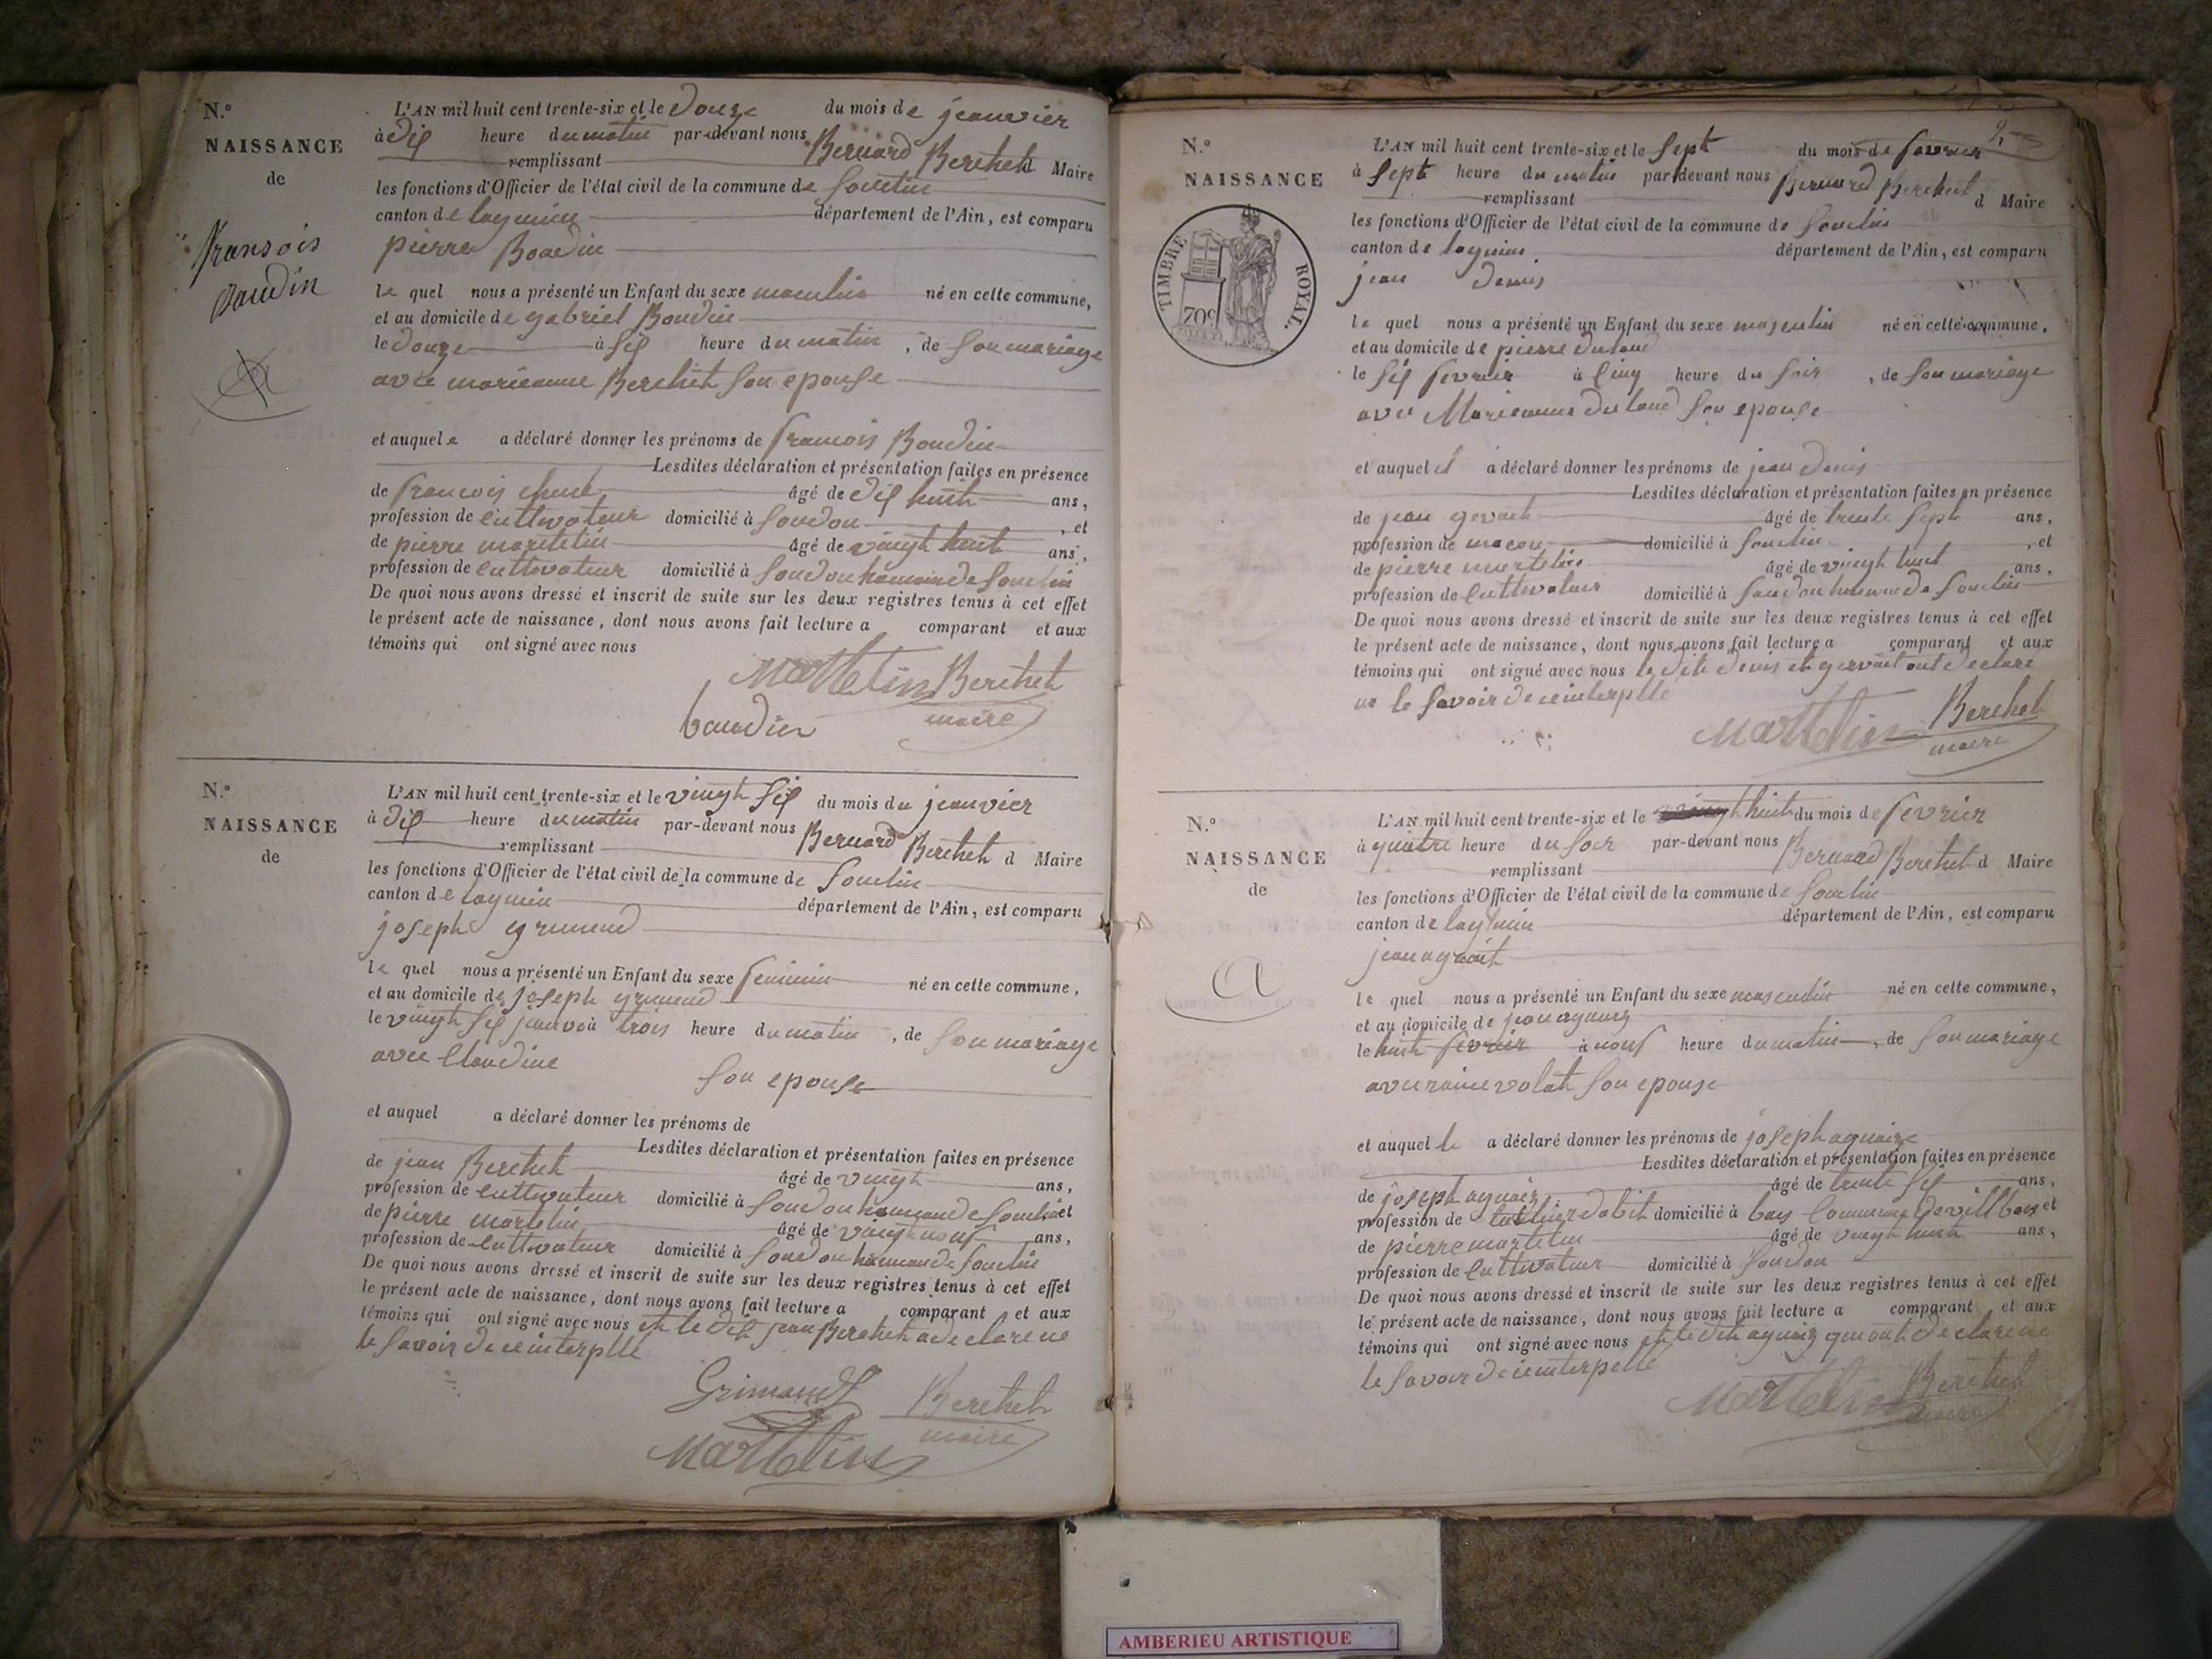 N.°
NAISSANCE
de
fransois
Baudin
L'AN mil huit cent trente-six et le douze du mois de jeanvier
à dix heure du matin par-devant nous Bernard Berthet d Maire
remplissant
les fonctions d'Officier de l'état civil de la commune de Souclin
canton de lagnieu département de l'Ain, est comparu
pierre Boudin
le quel nous a présenté un Enfant du sexe masculin né en cette commune,
et au domicile de gabriel Boudin
le douze à six heure du matin, de son mariage
avec marieanne Berthet son epouse
et auquel a déclaré donner les prénoms de francois Boudin
Lesdites déclaration et présentation faites en présence
de francois âgé de dix huit ans,
profession de cultivateur domicilié à Soudon, et
de pierre martelin âgé de vingt huit ans,
profession de cultivateur domicilié à Soudon hameau de Souclin
De quoi nous avons dressé et inscrit de suite sur les deux registres tenus à cet effet
le présent acte de naissance, dont nous avons fait lecture a comparant et aux
témoins qui ont signé avec nous
Martelin Berthet
baudin maire
N.°
NAISSANCE
de
L'AN mil huit cent trente-six et le vingt six du mois du jeanvier
à dix heure du matin par-devant nous Bernard Berthet d Maire
remplissant
les fonctions d'Officier de l'état civil de la commune de Souclin
canton de lagnieu département de l'Ain, est comparu
joseph grimend
le quel nous a présenté un Enfant du sexe feminin né en cette commune,
et au domicile de joseph grimend
le vingt six à trois heure du matin, de son mariage
avec Claudine
son epouse
et auquel a déclaré donner les prénoms de
Lesdites déclaration et présentation faites en présence
de jean Berthet âgé de vingt ans,
profession de cultivateur domicilié à Soudon hameau de Souclin et
de pierre martelin âgé de vingt neuf ans,
profession de cultivateur domicilié à Soudon hameau de Souclin
De quoi nous avons dressé et inscrit de suite sur les deux registres tenus à cet effet
le présent acte de naissance, dont nous avons fait lecture a comparant et aux
témoins qui ont signé avec nous et le dit jean Berthet a declare ne
le savoir de ce interplle
Grimand Berthet
maire
Martelin
N.°
NAISSANCE
TIMBRE ROYAL.
70c
L'AN mil huit cent trente-six et le sept du mois de fevrier
à sept heure du matin par devant nous Bernard Berthet d Maire
remplissant
les fonctions d'Officier de l'état civil de la commune de Souclin
canton de lagnieu département de l'Ain, est comparu
jean denis
le quel nous a présenté un Enfant du sexe masculin né en cette commune,
et au domicile de pierre
le six fevrier à cinq heure du soir, de son mariage
avec Marieanne son epouse
et auquel il a déclaré donner les prénoms de jean denis
Lesdites déclaration et présentation faites en présence
de jean gervait âgé de trente sept ans,
profession de macon domicilié à Souclin, et
de pierre martelin âgé de vingt huit ans,
profession de cultivateur domicilié à Soudon hameau de Souclin
De quoi nous avons dressé et inscrit de suite sur les deux registres tenus à cet effet
le présent acte de naissance, dont nous avons fait lecture a comparant et aux
témoins qui ont signé avec nous le dit denis et gervait ont declare
ne le savoir de ce interplle
Martelin Berthet
maire
N.°
NAISSANCE
de
L'AN mil huit cent trente-six et le huit du mois de fevrier
à quatre heure du soir par-devant nous Bernard Berthet d Maire
remplissant
les fonctions d'Officier de l'état civil de la commune de Souclin
canton de lagnieu département de l'Ain, est comparu
jean
le quel nous a présenté un Enfant du sexe masculin né en cette commune,
et au domicile de jean
le huit fevrier à neuf heure du matin, de son mariage
avec volat son epouse
et auquel le a déclaré donner les prénoms de joseph aguaire
Lesdites déclaration et présentation faites en présence
de joseph âgé de trente six ans,
profession de domicilié à bouis Commune de villbois et
de pierre martelin âgé de vingt huit ans,
profession de cultivateur domicilié à Soudon
De quoi nous avons dressé et inscrit de suite sur les deux registres tenus à cet effet
le présent acte de naissance, dont nous avons fait lecture a comparant et aux
témoins qui ont signé avec nous et le dit qui ont declare ne
le savoir de ce interpelle
Martelin Berthet
maire
AMBERIEU ARTISTIQUE